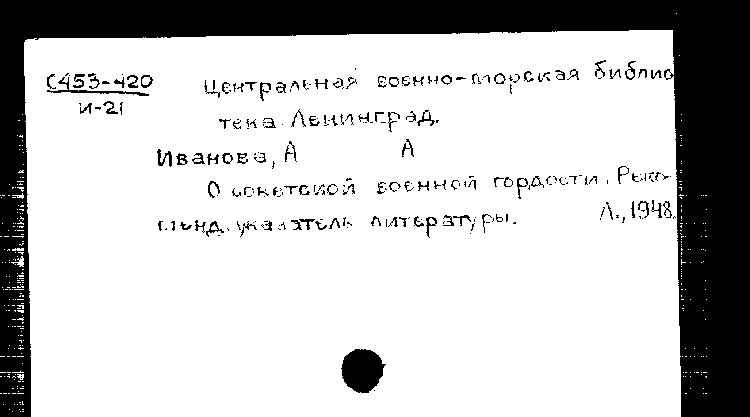 С453-420
И-21
Центральная военно-морская библио
тека. Ленинград.
Иванова, А А
О советской военной гордости. Реко-
менд. указатель литературы. Л., 1948.